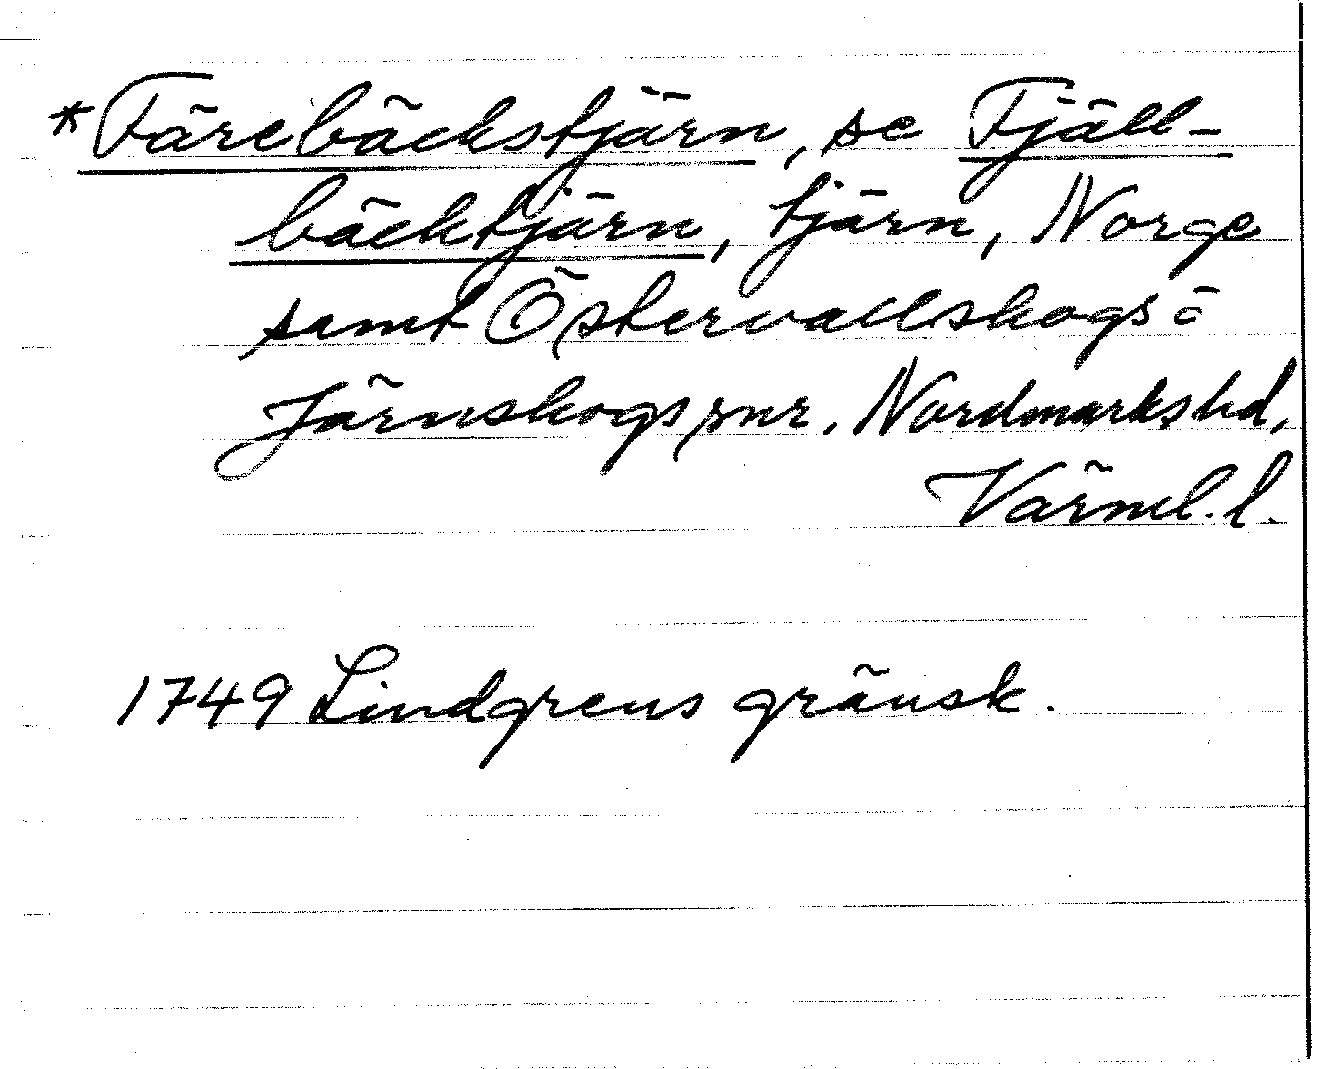 *Färebäckstjärn, se Fjäll-
bäcktjärn, tjärn, Norge
samt Östervallskogs o
Järnskogs snr. Nordmarks hd,
Värml. l.
1749 Lindgrens gränsk.